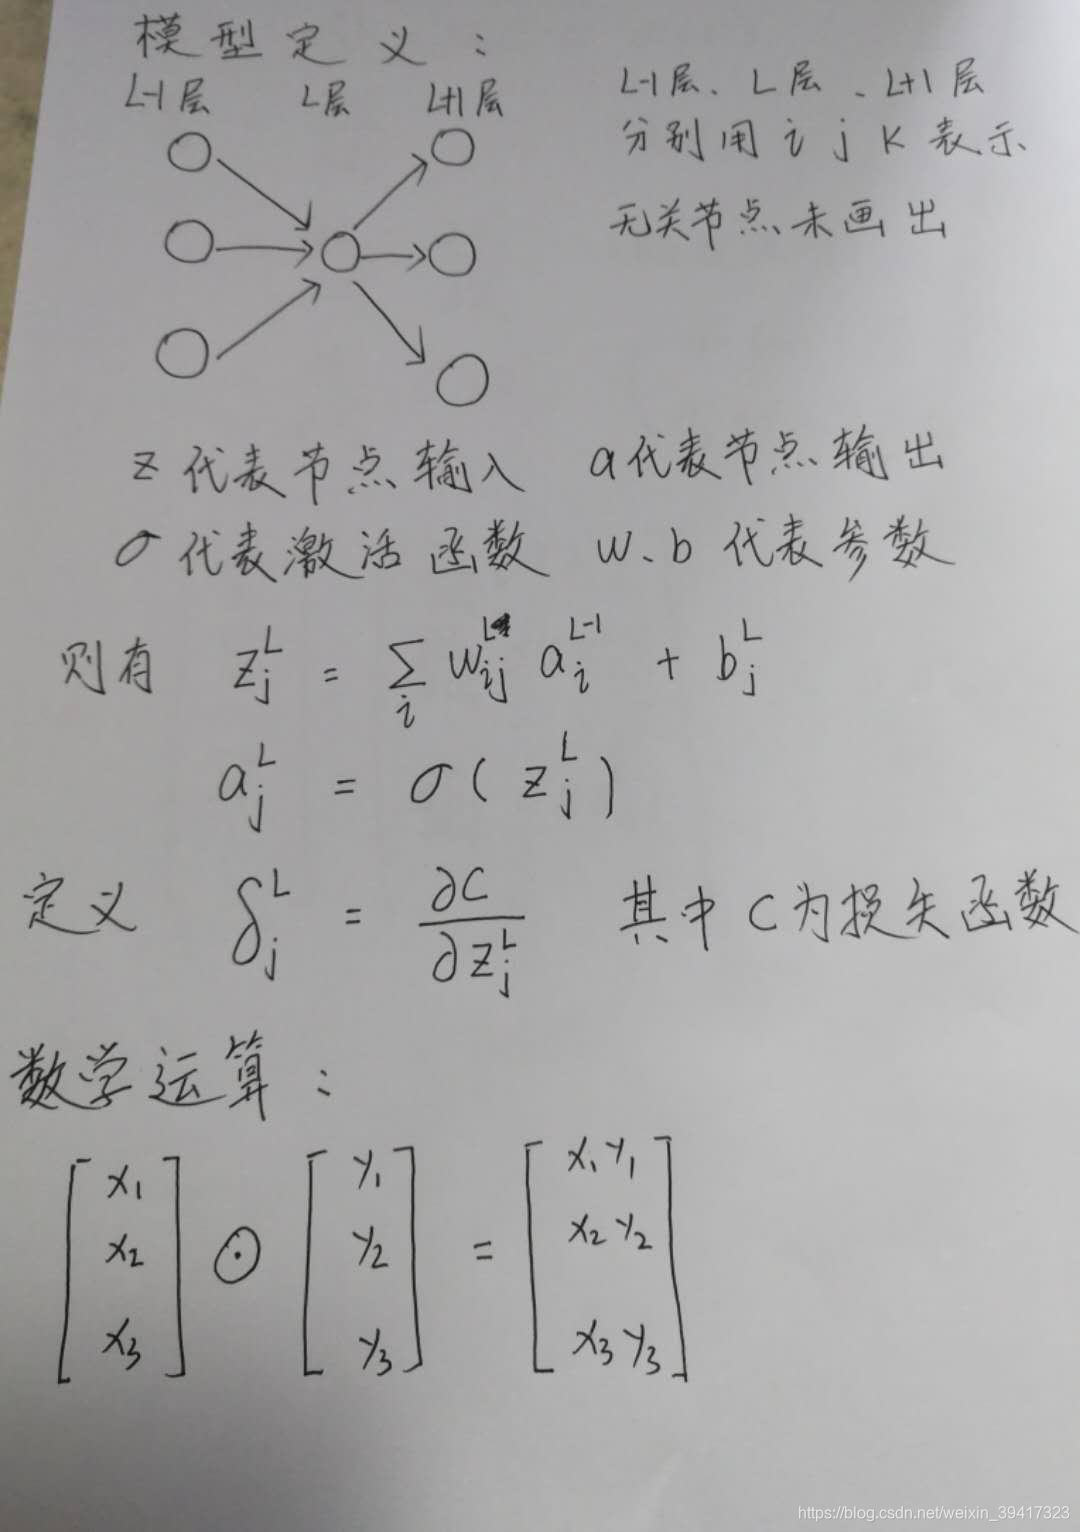 模型定义：
L-1层 L层 L+1层
L-1层、L层、L+1层
分别用 i j K 表示
无关节点未画出
z 代表节点输入 a代表节点输出
σ 代表激活函数 w、b 代表参数
则有 z_j^L = ∑_i w_{ij}^L a_i^{L-1} + b_j^L
a_j^L = σ( z_j^L )
定义 δ_j^L = ∂C / ∂z_j^L 其中C为损失函数
数学运算：
[x₁ x₂ x₃] ⊙ [y₁ y₂ y₃] = [x₁y₁ x₂y₂ x₃y₃]
https://blog.csdn.net/weixin_39417323